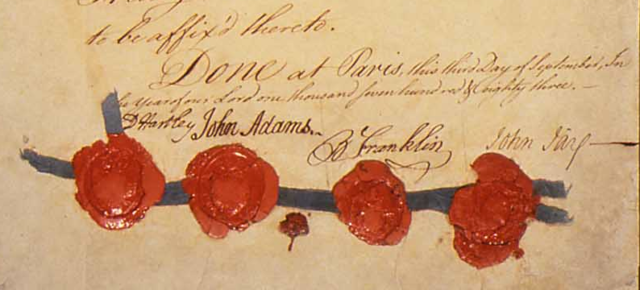 to be affix'd thereto.
Done at Paris, this third Day of September, In
the Year of our Lord one thousand seven hundred & eighty three. —
D Hartley John Adams. B Franklin John Jay —